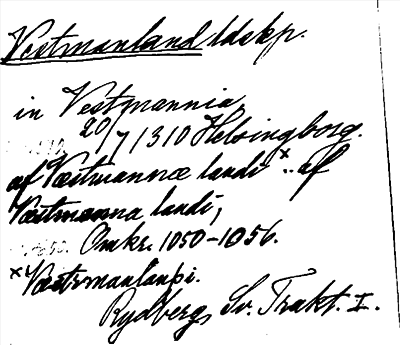 Vestmanland ldskp.
in Vestmannia
20/7 1310 Helsingborg.
af Væstmannæ landi x .. af
Væstmanna landi,
Omkr. 1050-1056.
x Væstrmanlanþi.
Rydberg, Sv. Trakt. I.